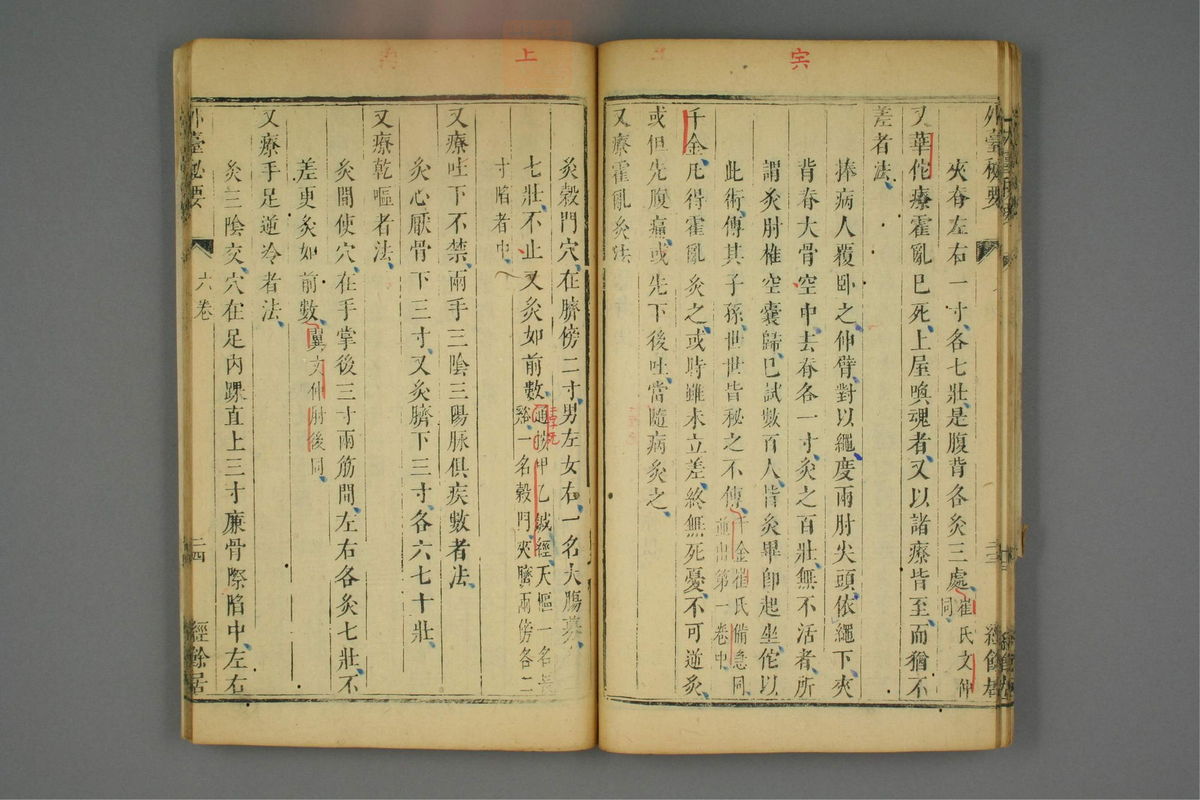 宍
外臺秘要
夾脊左右一寸各七壯是腹背各灸三處崔氏文仲同
又華佗療霍亂巳死上屋喚魂者又以諸療皆至而猶不
差者法
捧病人覆臥之伸臂對以繩度兩肘尖頭依繩下夾
背脊大骨空中去脊各一寸灸之百壯無不活者所
謂灸肘椎空囊歸巳試數百人皆灸畢即起坐佗以
此術傳其子孫世世皆秘之不傳千金崔氏備急同並出第一卷中
千金凡得霍亂灸之或時雖未立差終無死憂不可逆灸
或但先腹痛或先下後吐當隨病灸之
又療霍亂灸法
上
灸穀門穴在臍傍二寸男左女右一名大腸募
七壯不止又灸如前數通按甲乙鍼經天樞一名長谿一名穀門夾臍兩傍各二
寸陷者中
又療吐下不禁兩手三陰三陽脉俱疾數者法
灸心厭骨下三寸又灸臍下三寸各六七十壯
又療乾嘔者法
灸間使穴在手掌後三寸兩筋間左右各灸七壯不
差更灸如前數翼文仲肘後同
又療手足逆冷者法
灸三陰交穴在足內踝直上三寸廉骨際陷中左右
外臺秘要 六卷 二四 經餘居